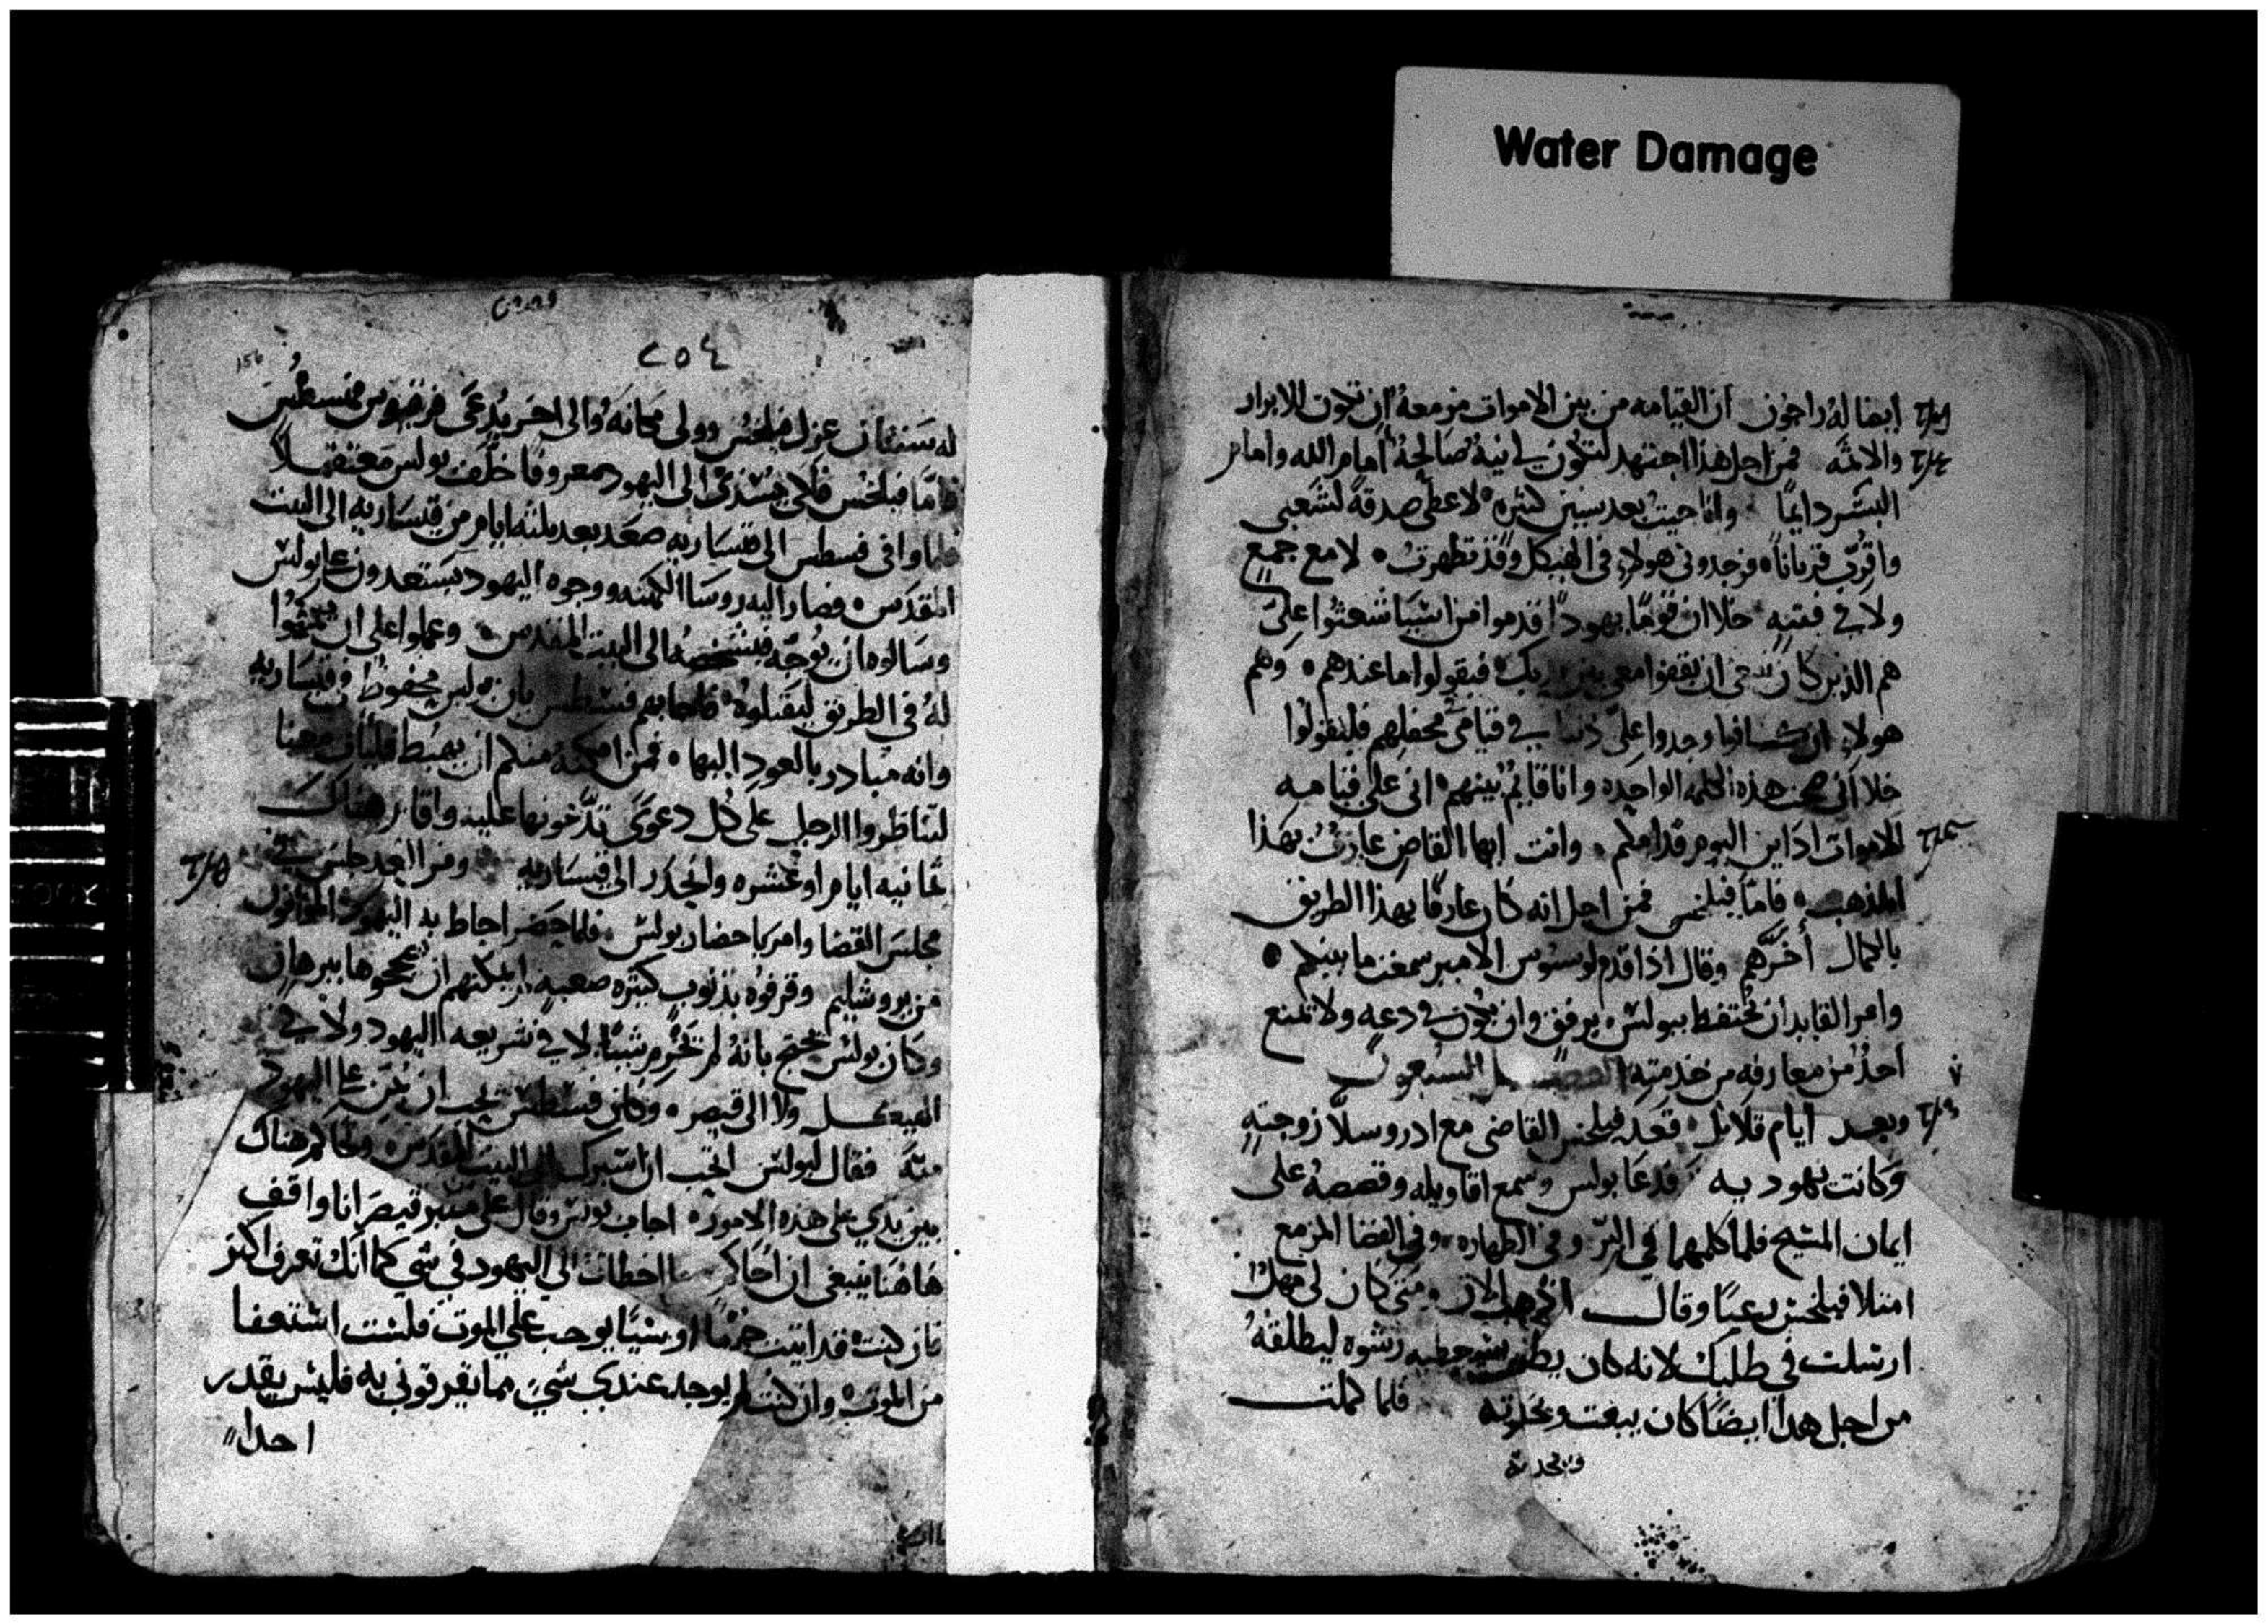 Water Damage
ايضا له راجون ان القيامه من بين الاموات مزمعة ان تكون للابرار
والاثمه فمن اجل هذا اجتهد لتكون لي نية صالحة امام الله وامام
البشر دايما وانا جيت بعد سنين كثيره لاعطي صدقة لشعبي
واقرب قربانا فوجدوني هولاء في الهيكل وقد تطهرت لا مع جمع
ولا في فتنه خلا ان قوما يهودا قدموا من اسيا شعثوا علي
هم الذين كان ينبغي ان يقفوا معي بين يديك فيقولوا ما عندهم وهم
هولاء ان كانوا وجدوا علي ذنبا في قيامي محفلهم فليقولوا
خلا اني صحت هذه الكلمه الواحده وانا قايم بينهم اني على قيامه
الاموات ادان اليوم قدامكم وانت ايها القاضي عارف بهذا
المذهب فاما فيلخس فمن اجل انه كان عارفا بهذا الطريق
بالكمال أخرهم وقال اذا قدم لوسيوس الامير سمعت ما بينكم
وامر القايد ان يحتفظ ببولس برفق وان يكون في دعه ولا يمنع
احد من معارفه من خدمته السبعون
وبعد ايام قلائل قعد فيلخس القاضي مع ادروسلا زوجته
وكانت يهوديه فدعا بولس وسمع اقاويله وقصصه على
ايمان المسيح فلما كلمهما في البر وفي الطهاره وفي القضا المزمع
امتلا فيلخس رعبا وقال اذهب الان ومتى كان لي مهلا
ارسلت في طلبك لانه كان يظن رشوه ليطلقه
من اجل هذا ايضا كان يبعث فلما كملت
ويحدثه
٢٥٤
156
له سنتان عزل فيلخس وولى مكانه والى اخر يدعى فرقيوس فسطس
فاما فيلخس فلكي يسدي الى اليهود معروفا خلف بولس معتقلا
فلما وافى فسطس الى قيساريه صعد بعد ثلثه ايام من قيساريه الى البيت
المقدس فصار اليه روسا الكهنه ووجوه اليهود يستعدون على بولس
وسالوه ان يوجه الى البيت المقدس وعملوا على ان يكمنوا
له في الطريق ليقتلوه فاجابهم فسطس بان بولس محفوظ في قيساريه
وانه مبادر بالعود اليها فمن امكنه منكم ان يهبط فليات معنا
لتناظروا الرجل على كل دعوى تدعونها عليه واقام هناك
ثمانيه ايام او عشره وانحدر الى قيساريه ومن الغد جلس في
مجلس القضا وامر باحضار بولس فلما حضر احاط به اليهود
من يروشليم وقرفوه بذنوب كثيره صعبه لم يمكنهم ان يصححوها ببرهان
وكان بولس يحتج بانه لم يجرم شيئا لا في شريعه اليهود ولا في
الهيكل ولا الى قيصر وكان فسطس يحب ان يمن على اليهود
منه فقال لبولس اتحب ان اسيرك الى البيت المقدس وتحاكم هناك
بين يدي على هذه الامور اجاب بولس وقال على منبر قيصر انا واقف
هاهنا ينبغي ان احاكم ما اخطات الى اليهود في شي كما انك تعرف اكثر
فان كنت قد اتيت جرما او شيا يوجب علي الموت فلست استعفا
من الموت وان كنت لم يوجد عندي شي مما يقرفوني به فليس يقدر
احدا